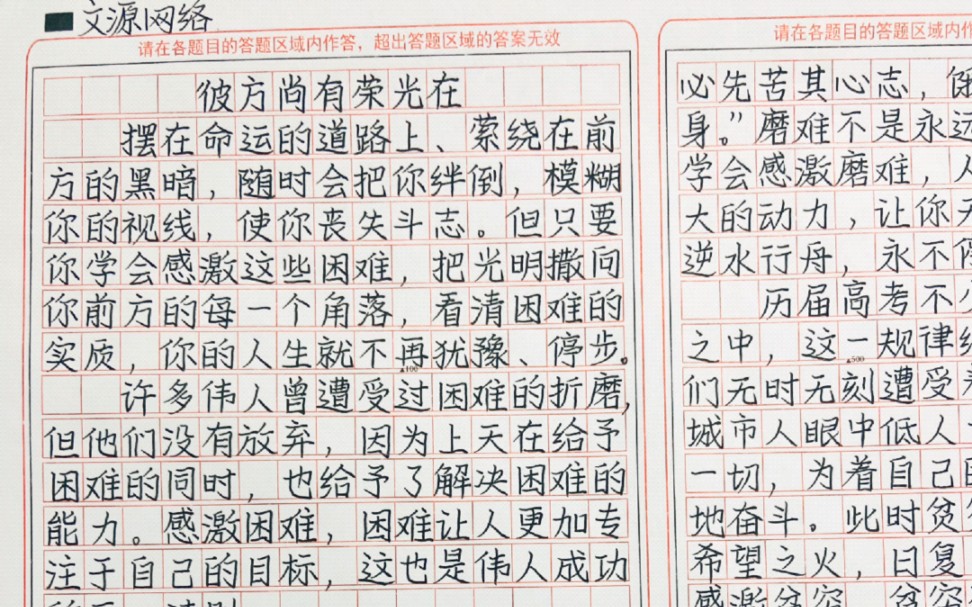 文源网络
请在各题目的答题区域内作答，超出答题区域的答案无效
彼方尚有荣光在
摆在命运的道路上、萦绕在前
方的黑暗，随时会把你绊倒，模糊
你的视线，使你丧失斗志。但只要
你学会感激这些困难，把光明撒向
你前方的每一个角落，看清困难的
实质，你的人生就不再犹豫、停步。
▲100
许多伟人曾遭受过困难的折磨，
但他们没有放弃，因为上天在给予
困难的同时，也给予了解决困难的
能力。感激困难，困难让人更加专
注于自己的目标，这也是伟人成功
请在各题目的答题区域内作
必先苦其心志，
身。”磨难不是永远
学会感激磨难，人
大的动力，让你
逆水行舟，永不
历届高考不
之中，这一规律
▲500
们无时无刻遭受
城市人眼中低人
一切，为着自己
地奋斗。此时贫
希望之火，日复
感激贫穷，贫穷